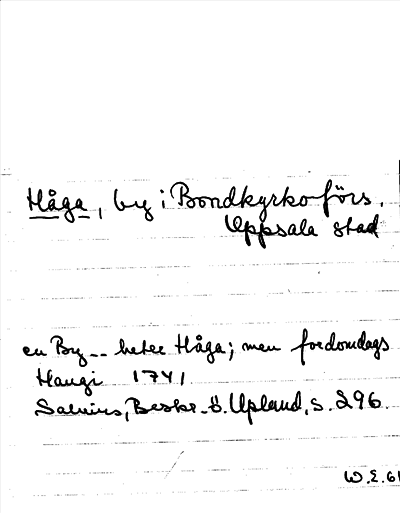 Håga, by i Bondkyrko förs.
Uppsala stad
en By -- heter Håga; men fordomdags
Haugi 1741
Salvius, Beskr. ö. Upland, s. 296.
W.E. 61